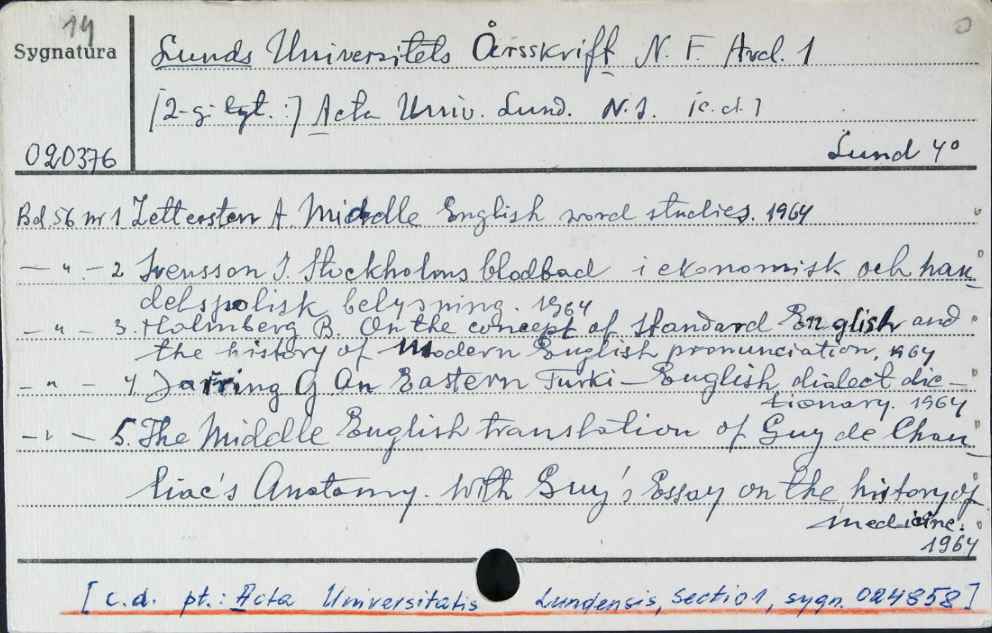 14
Sygnatura
Lunds Universitets Årsskrift N. F. Avd. 1
[2-gi tyt.:] Acta Univ. Lund. N.S. [c.d.]
020376
Lund 4°
Bd 56 nr 1 Zettersten A. Middle English word studies. 1964
— " — 2 Svensson J. Stockholms blodbad i ekonomisk och han-
delspolisk belysning. 1964
— " — 3. Holmberg B. On the concept of standard English and
the history of modern English pronunciation. 1964
— " — 4. Jarring G. An Eastern Turki-English dialect dic-
tionary. 1964
— " — 5. The Middle English translation of Guy de Chau-
liac's Anatomy. With Guy's Essay on the history of
medicine.
1964
[c.d. pt.: Acta Universitatis Lundensis, sectio 1, sygn. 024858]